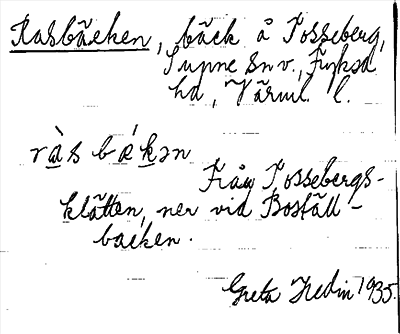 Rasbäcken, bäck å Tosseberg,
Sunne Sn v., Fryksd
hd, Värml. l.
ràs bǽkən
Från Tossebergs-
klätten, ner vid Boställ-
backen.
Greta Hedin 1935.